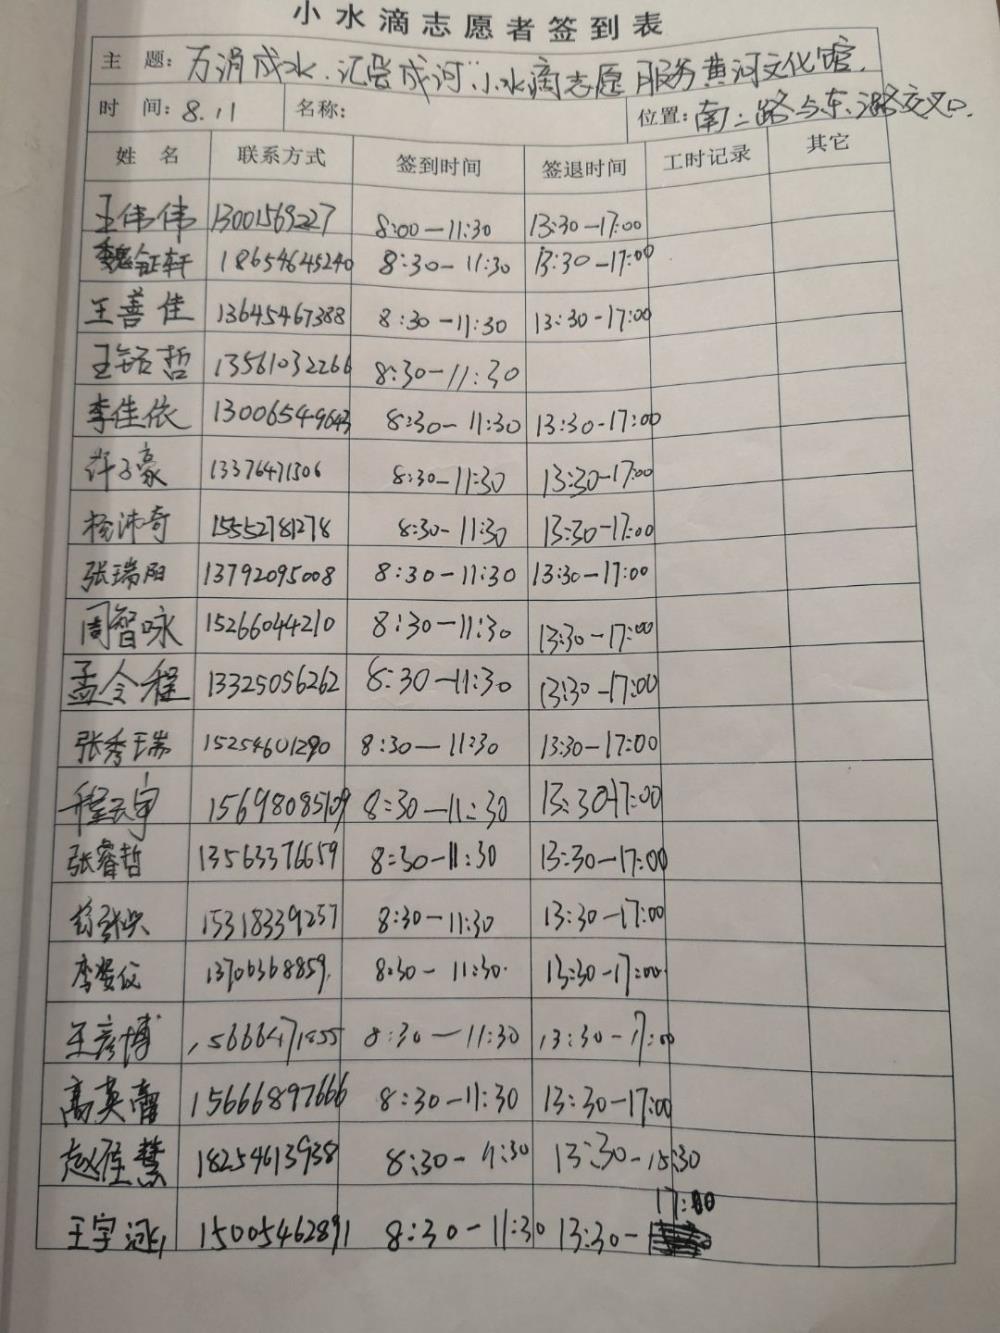 小水滴志愿者签到表
主 题: 万涓成水.汇聚成河"小水滴志愿服务黄河文化馆.
时 间: 8.11 名称: 位置: 南二路与东 路交叉口.
姓 名 联系方式 签到时间 签退时间 工时记录 其它
王伟伟 13001569227 8:00—11:30 13:30-17:00
魏钲轩 18654645240 8:30-11:30 13:30-17:00
王善佳 13645467388 8:30-11:30 13:30-17:00
王铭哲 13561032266 8:30-11:30
李佳依 13006549643 8:30-11:30 13:30-17:00
许子豪 13376471306 8:30-11:30 13:30-17:00
杨沛奇 15552781278 8:30-11:30 13:30-17:00
张瑞阳 13792095008 8:30-11:30 13:30-17:00
周智咏 15266044210 8:30-11:30 13:30-17:00
孟令程 13325056262 8:30-11:30 13:30-17:00
张秀瑞 15254601290 8:30—11:30 13:30-17:00
程云宇 15698085109 8:30—11:30 13:30-17:00
张睿哲 13563376659 8:30-11:30 13:30-17:00
15318339257 8:30-11:30 13:30-17:00
李姿仪 13706368859. 8:30-11:30. 13:30-17:00.
王彦博 15666471855 8:30—11:30 13:30-17:00
高英 15666897666 8:30-11:30 13:30-17:00
赵佳慧 18254613938 8:30-11:30 13:30-15:30
王宇 15005462891 8:30-11:30 13:30- 17:00